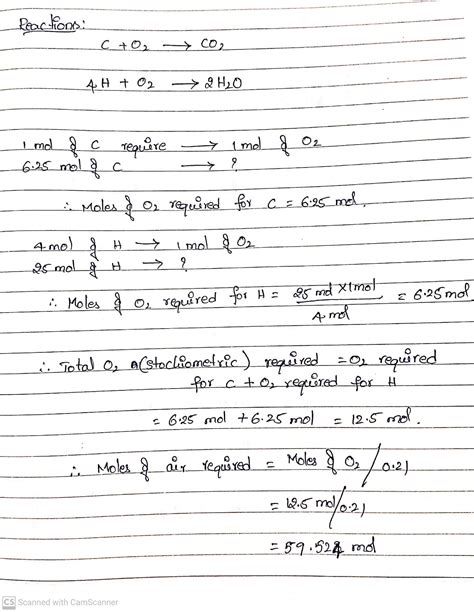 Reactions:
C + O₂ → CO₂
4H + O₂ → 2H₂O
1 mol of C require → 1 mol of O₂
6.25 mol of C → ?
∴ Moles of O₂ required for C = 6.25 mol.
4 mol of H → 1 mol of O₂
25 mol of H → ?
∴ Moles of O₂ required for H = 25 mol × 1 mol / 4 mol = 6.25 mol
∴ Total O₂ (stochiometric) required = O₂ required
for C + O₂ required for H
= 6.25 mol + 6.25 mol = 12.5 mol.
∴ Moles of air required = Moles of O₂ / 0.21
= 12.5 mol / 0.21
= 59.524 mol
CS Scanned with CamScanner